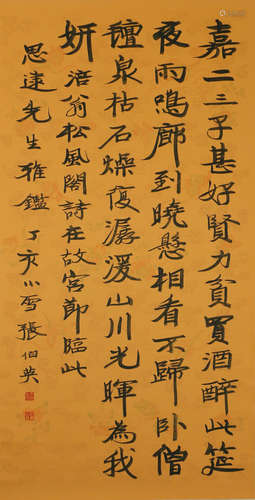 嘉二三子甚好賢力貧買酒醉此筵
夜雨鳴廊到曉懸相看不歸卧僧
氊泉枯石燥復潺湲山川光暉為我
妍 涪翁松風閣詩在故宮節臨此
思逮先生雅鑑 丁亥小雪張伯英